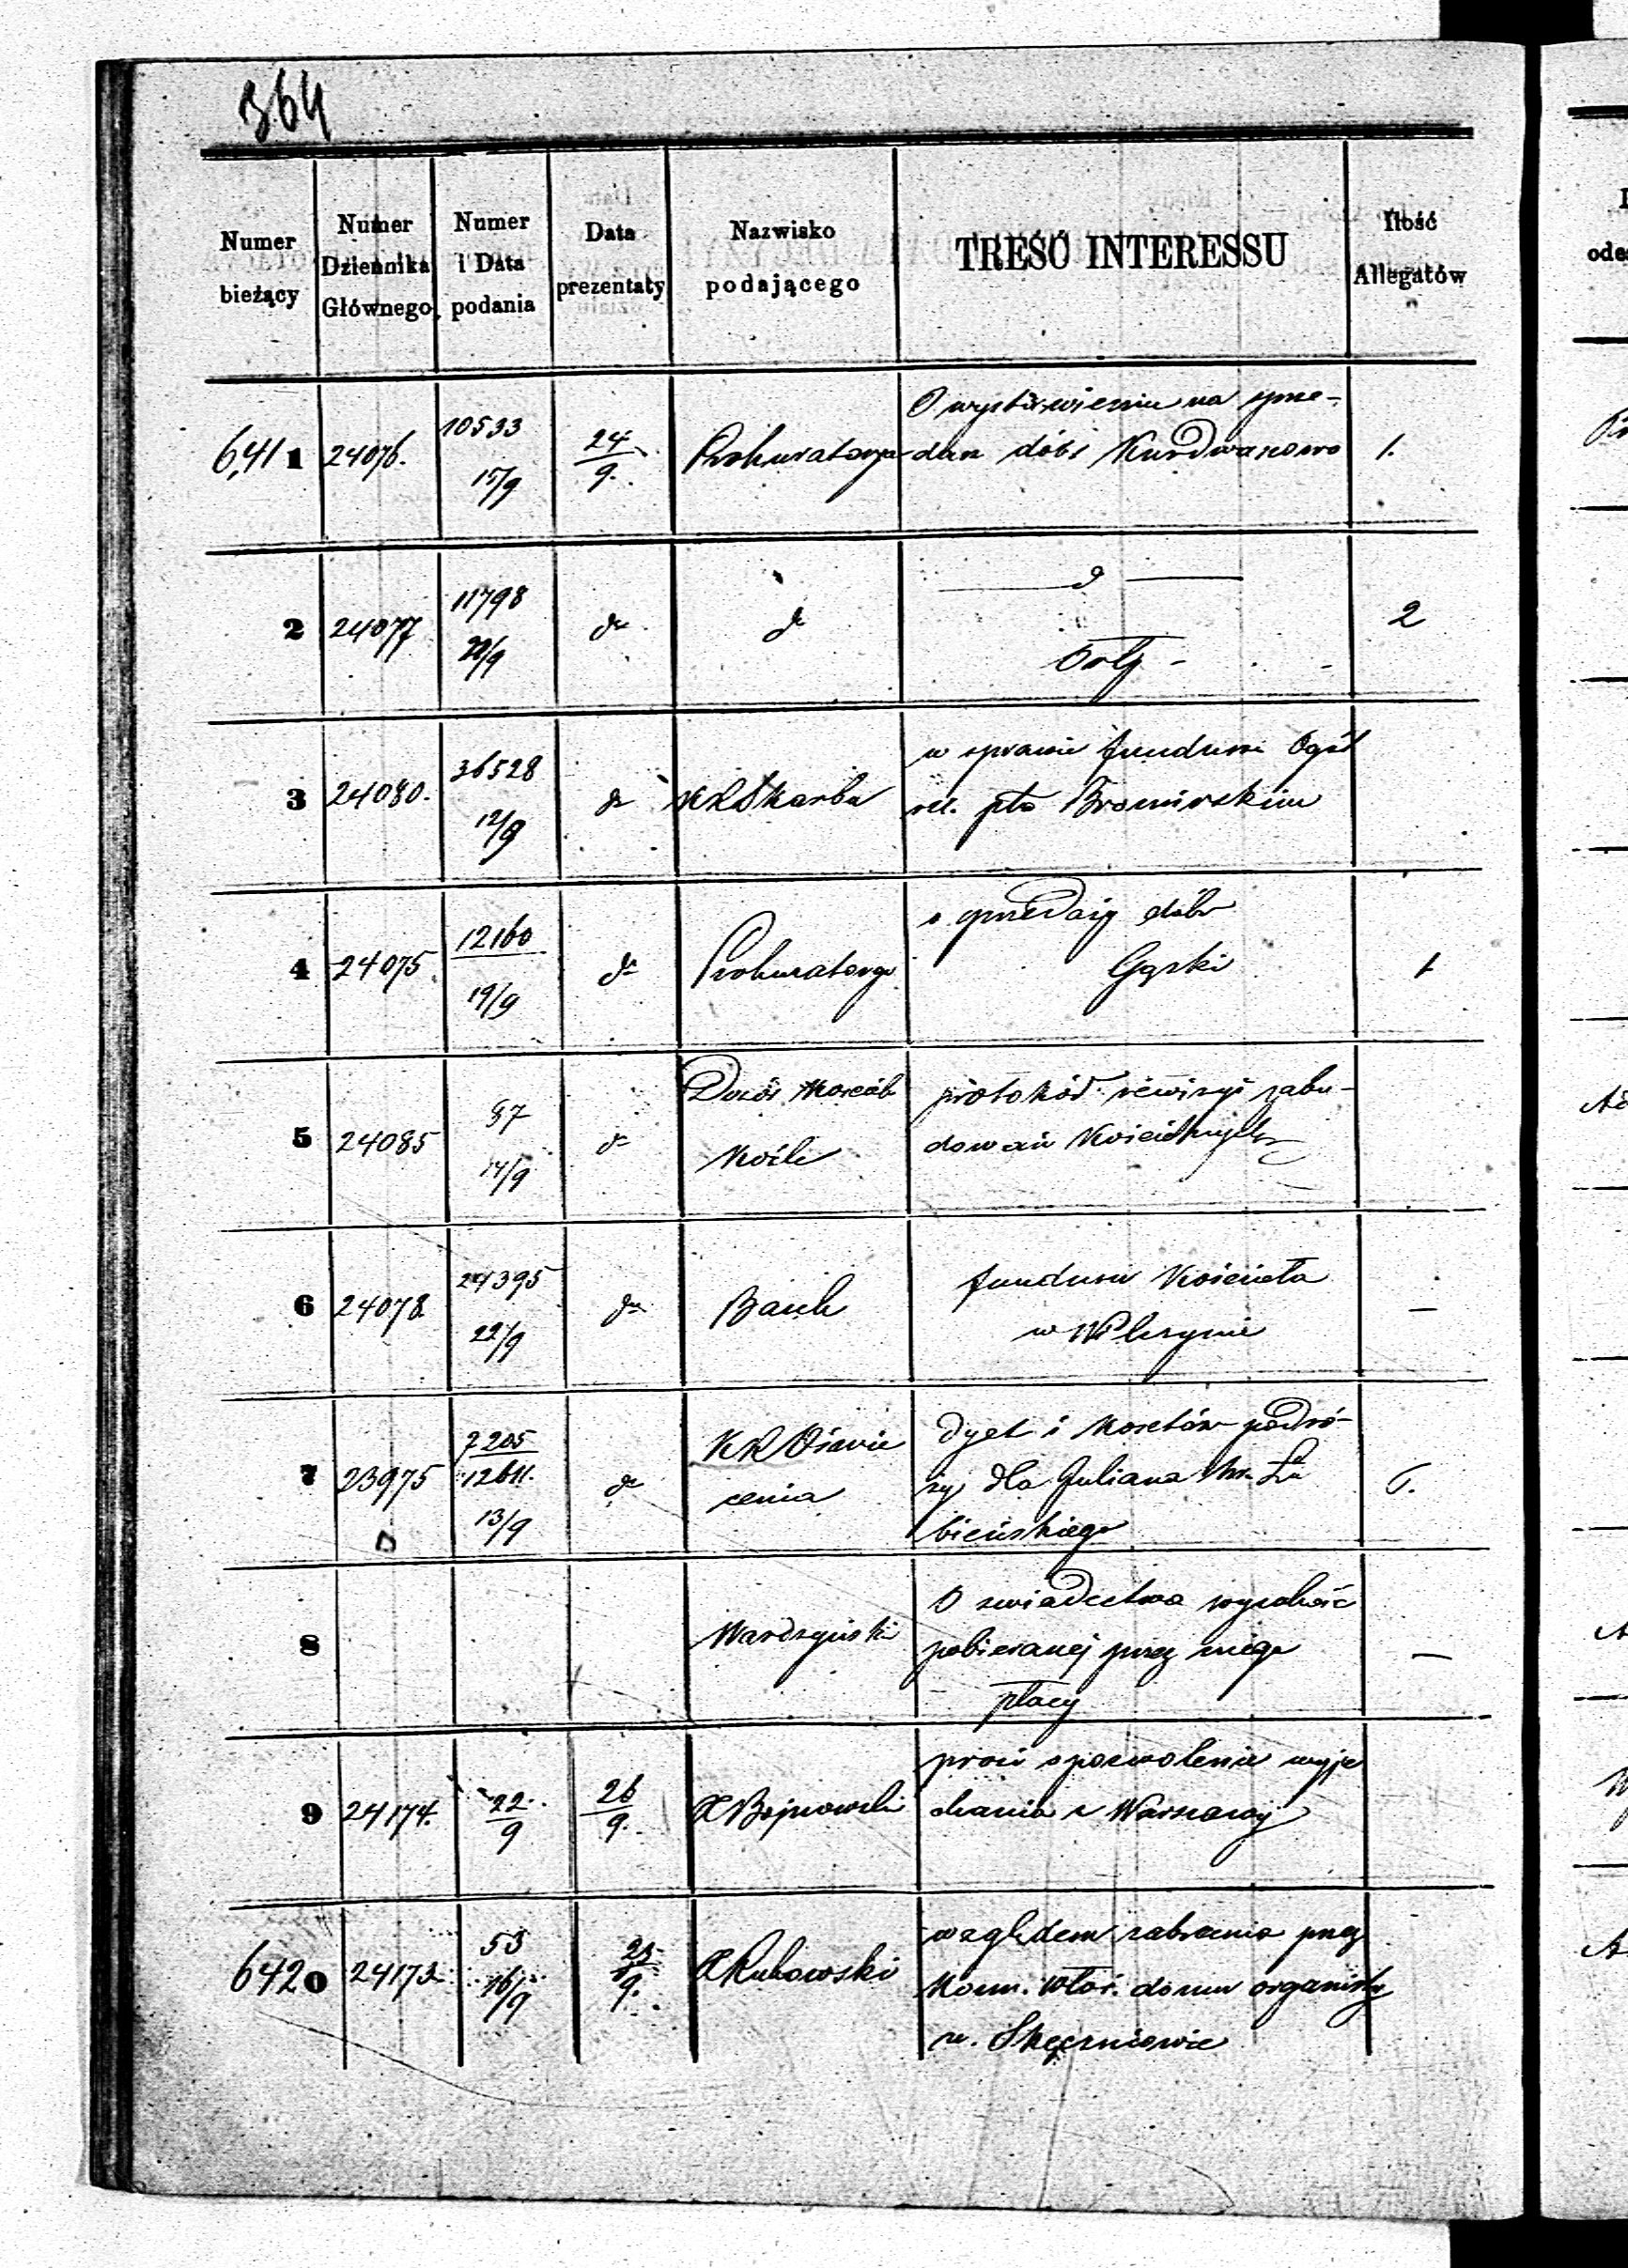 364
Numer bieżący
Numer Dziennika Głównego
Numer i Data podania
Data prezentaty
Nazwisko podającego
TREŚĆ INTERESSU
Ilość Allegatów
6,411 24076. 10533 15/9 24/9 Prokuratorya O wystawieniu na sprze- 1.
daż dóbr Kurdwanowo
2 24077 11798 22/9 do do d 2
3 24080. 36528 12/9 do KR Skarbu w sprawie funduszu Ogól
4 24075 12160 19/9 do Prokuratorya o sprzedaży dóbr 1
Gąski
5 24085 87 14/9 do Dozór Kościoła protokół rewizyi zabu-
dowań Kościelnych
6 24078 24395 22/9 do Bank funduszu Kościoła —
w
7 23975 7205 12611. 13/9 do KR Oświe dyet i kosztów podró-
cenia ży dla Juliana hr. Łu
bieńskiego
8 Wardzyński O świadectwo wysokości
pobieranej przez niego —
płacy
9 24174. 22/9 26/9 X Bojnowski prosi o pozwolenie wyje
chania z Warszawy
6420 24173 53 16/9 X Rukowski względem zabrania przez
Kom. Włoś. domu organisty
w Skęczniewie